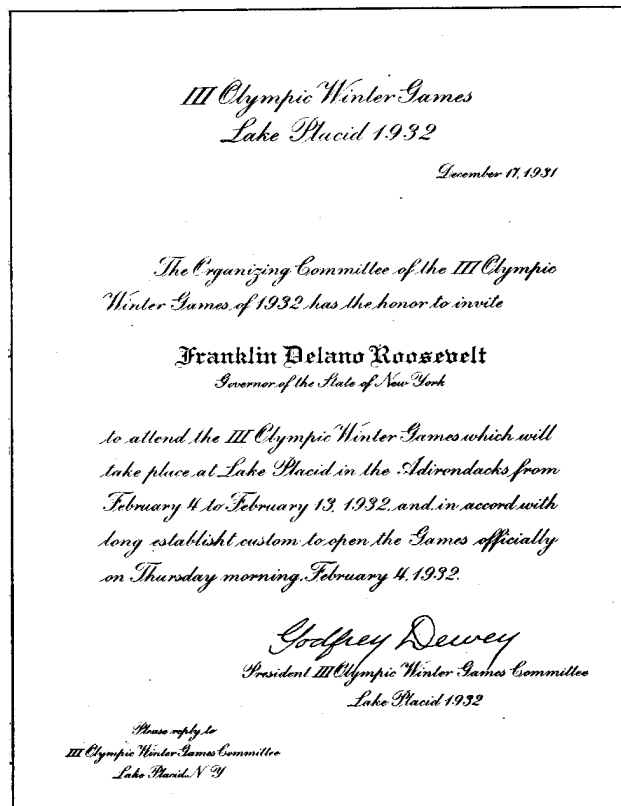 III Olympic Winter Games
Lake Placid 1932
December 17, 1931
The Organizing Committee of the III Olympic
Winter Games of 1932 has the honor to invite
Franklin Delano Roosevelt
Governor of the State of New York
to attend the III Olympic Winter Games which will
take place at Lake Placid in the Adirondacks from
February 4 to February 13, 1932, and, in accord with
long establisht custom to open the Games officially
on Thursday morning, February 4, 1932.
Godfrey Dewey
President III Olympic Winter Games Committee
Lake Placid 1932
Please reply to
III Olympic Winter Games Committee
Lake Placid, N Y